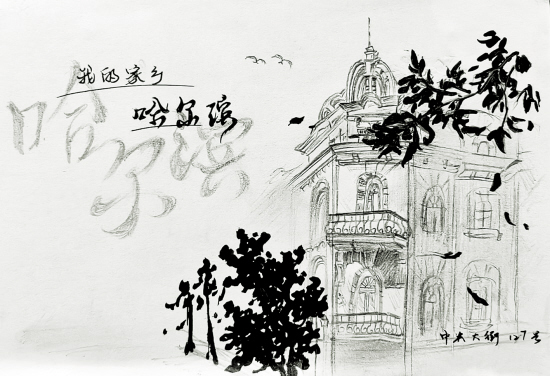 我的家乡
哈尔滨
哈尔滨
中央大街 127号